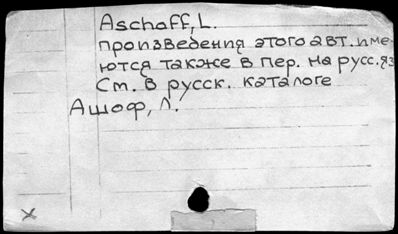 Aschoff, L.
произведения этого авт. име-
ются также в пер. на русс. яз
См. в русск. каталоге
Ашоф, Л.